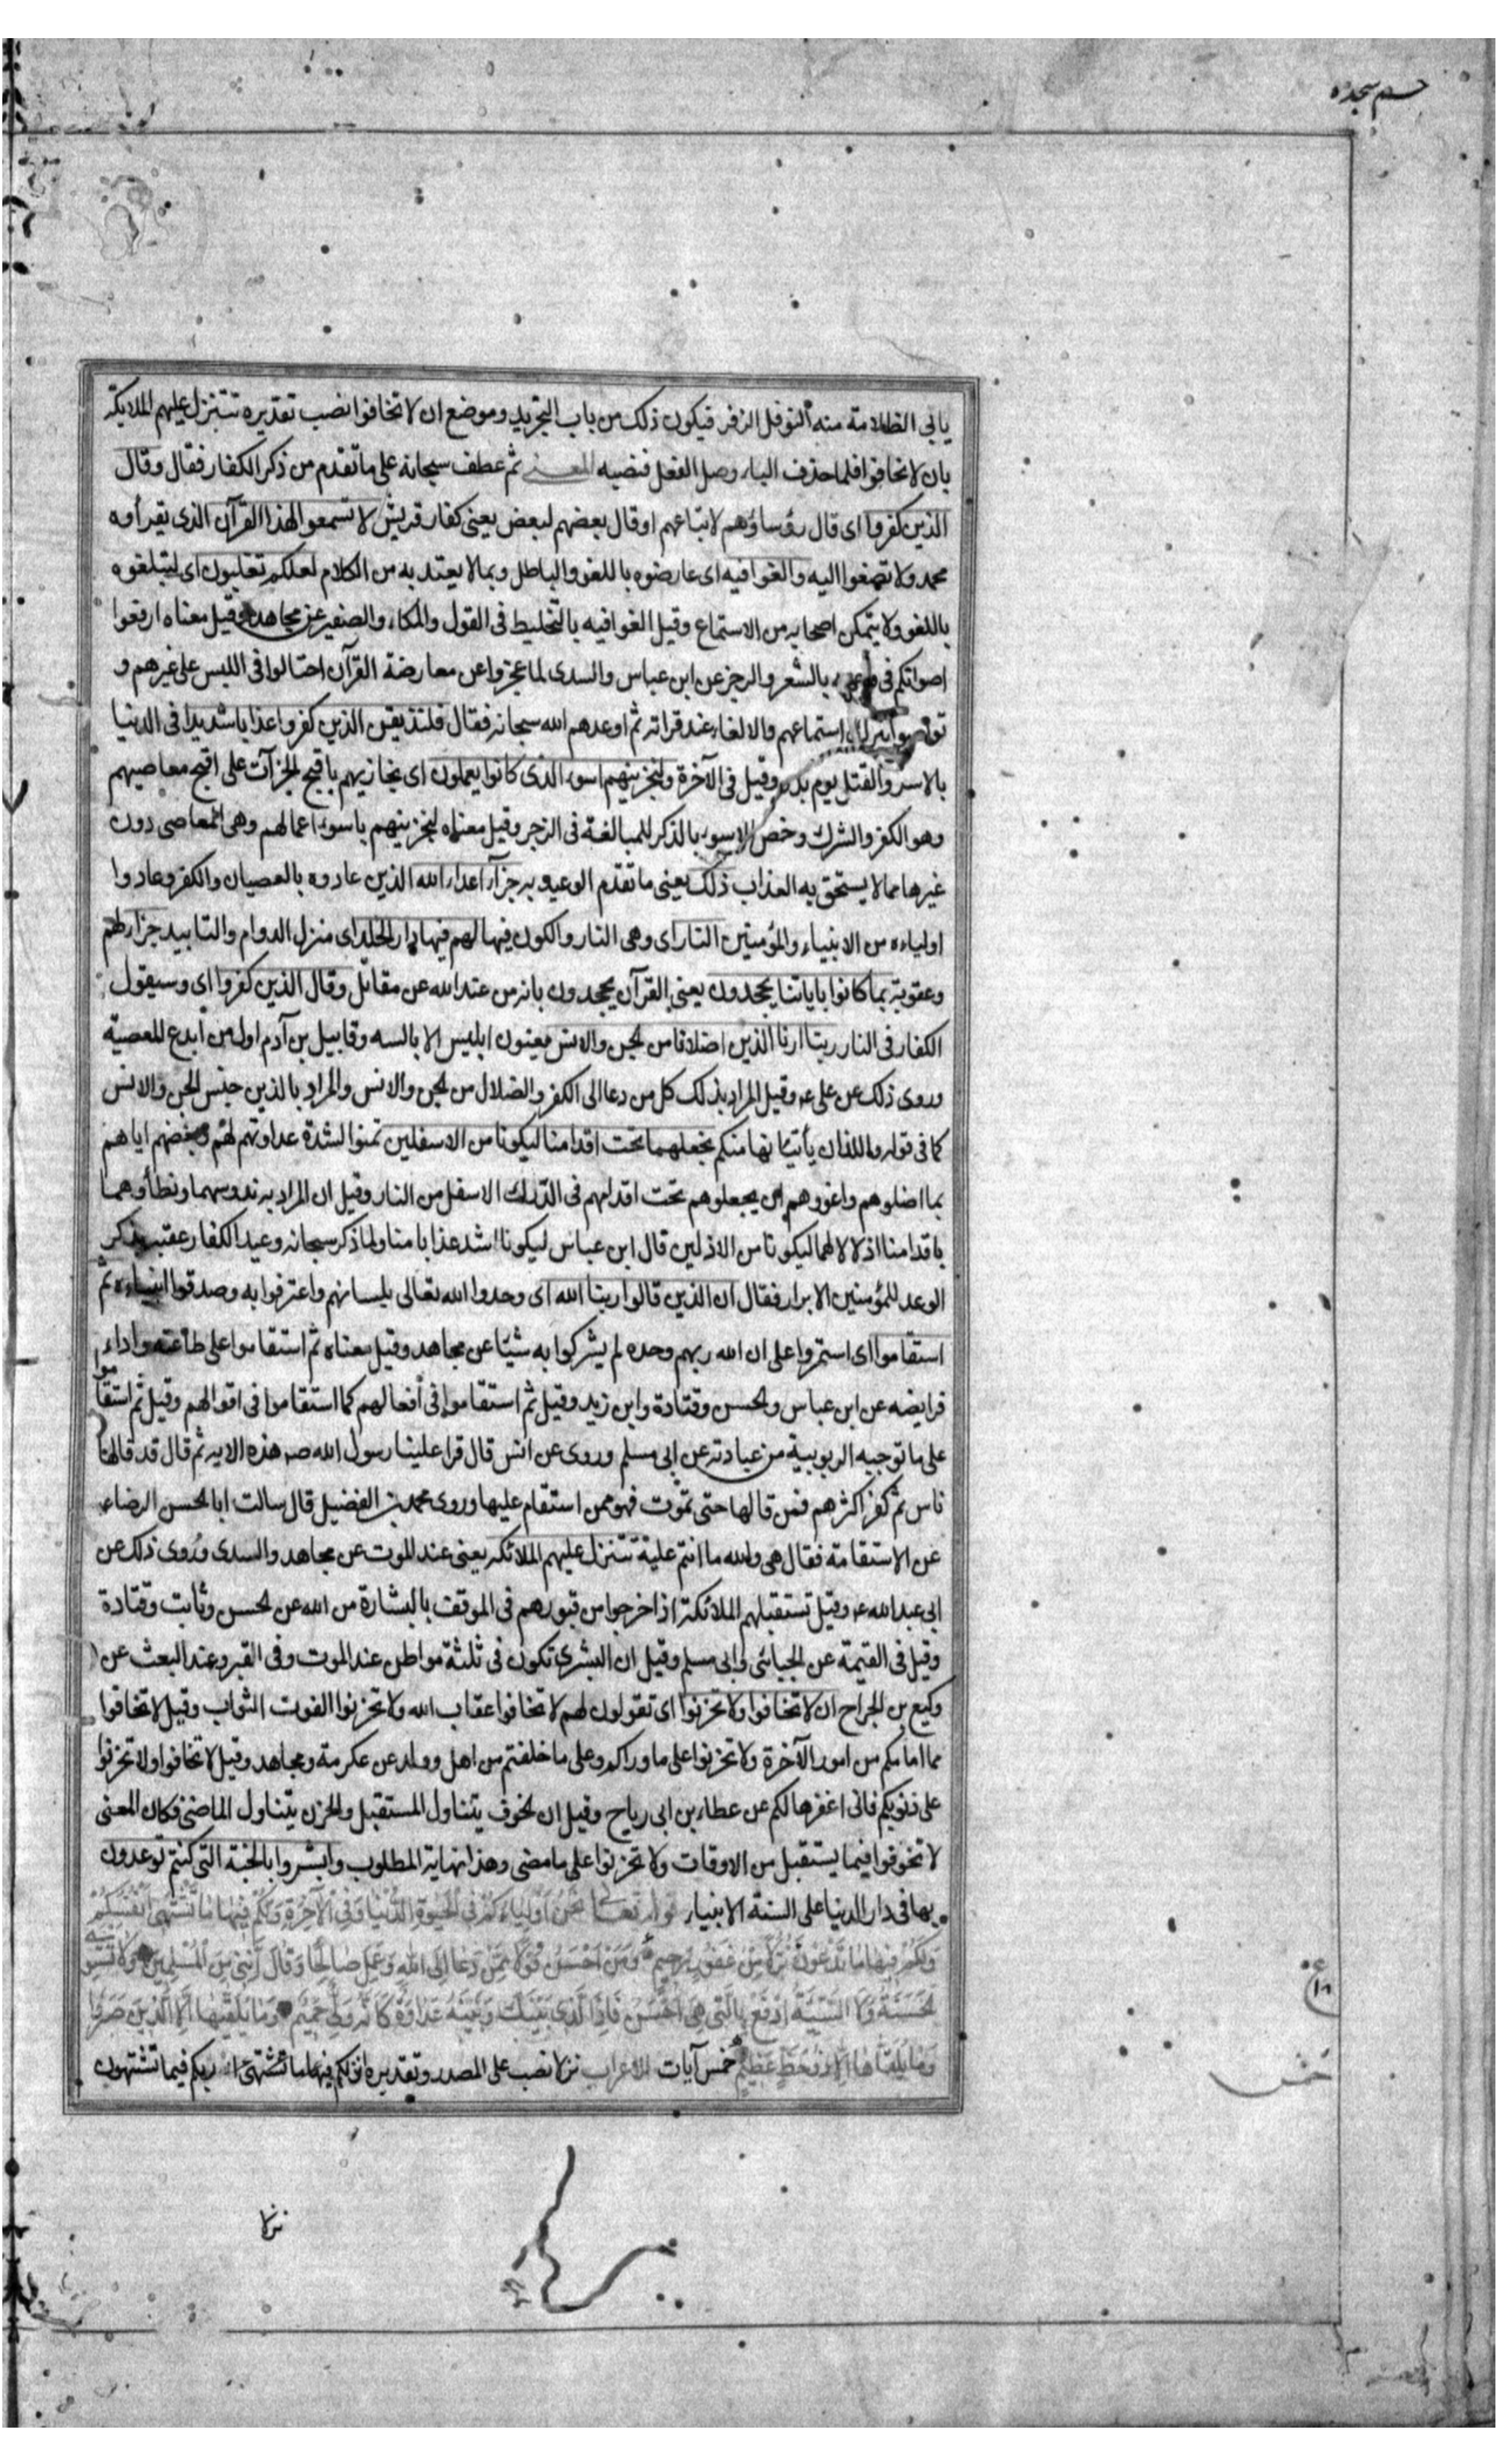 حم سجده
يابى الظلامة منه النوفل الزفر فيكون ذلك من باب التجريد وموضع ان لا تخافوا نصب تقديره تتنزل عليهم الملايكة
بان لا تخافوا فلما حذف الباء وصل الفعل فنصبه المعنى ثم عطف سبحانه على ما تقدم من ذكر الكفار فقال وقال
الذين كفروا اى قال رؤساؤهم لاتباعهم او قال بعضهم لبعض يعنى كفار قريش لا تسمعوا لهذا القرآن الذى يقرأوه
محمد ولا تصغوا اليه والغوا فيه اى عارضوه باللغو والباطل وبما لا يعتد به من الكلام لعلكم تغلبون اى لتبلغوه
باللغو ولا يتمكن اصحابه من الاستماع وقيل الغوا فيه بالتخليط فى القول والمكاء والصفير عن مجاهد وقيل معناه ارفعوا
اصواتكم فى بالشعر والرجز عن ابن عباس والسدى لما عجزوا عن معارضة القرآن احتالوا فى اللبس على غيرهم و
تواصوا بترك استماعهم والالغاء عند قراته ثم اوعدهم الله سبحانه فقال فلنذيقن الذين كفروا عذابا شديدا فى الدنيا
بالاسر والقتل يوم بدر وقيل فى الآخرة ولنجزينهم اسوء الذى كانوا يعملون اى نجازيهم باقبح الجزآت على اقبح معاصيهم
وهو الكفر والشرك وخص الاسوء بالذكر للمبالغة فى الزجر وقيل معناه لنجزينهم باسوء اعمالهم وهى المعاصى دون
غيرها مما لا يستحق به العذاب ذلك يعنى ما تقدم الوعيد به جزآء اعداء الله الذين عادوه بالعصيان والكفر وعادوا
اولياءه من الانبياء والمؤمنين النار اى وهى النار والكون فيها لهم فيها دار الخلد اى منزل الدوام والتابيد جزاء لهم
وعقوبة بما كانوا باياتنا يجحدون يعنى القرآن يجحدون بانه من عند الله عن مقاتل وقال الذين كفروا اى وسيقول
الكفار فى النار ربنا ارنا الذين اضلانا من الجن والانس يعنون ابليس الابالسه وقابيل بن آدم اول من ابدع المعصية
وروى ذلك عن على ع وقيل المراد بذلك كل من دعا الى الكفر والضلال من الجن والانس والمراد بالذين جنس الجن والانس
كما فى قوله واللذان يأتيانها منكم نجعلهما تحت اقدامنا ليكونا من الاسفلين تمنوا لشدة عداوتهم لهم وبغضهم اياهم
بما اضلوهم واغووهم ان يجعلوهم تحت اقدامهم فى الدرك الاسفل من النار وقيل ان المراد به ندوسهما ونطأوهما
باقدامنا اذلالا لهما ليكونا من الاذلين قال ابن عباس ليكونا اشد عذابا منا ولما ذكر سبحانه وعيد الكفار عقبه بذكر
الوعد للمؤمنين الابرار فقال ان الذين قالوا ربنا الله اى وحدوا الله تعالى بلسانهم واعترفوا به وصدقوا انبياءه ثم
استقاموا اى استمروا على ان الله ربهم وحده لم يشركوا به شيئا عن مجاهد وقيل معناه ثم استقاموا على طاعته واداء
فرايضه عن ابن عباس والحسن وقتادة وابن زيد وقيل ثم استقاموا فى افعالهم كما استقاموا فى اقوالهم وقيل ثم استقاموا
على ما توجبه الربوبية من عبادته عن ابى مسلم وروى عن انس قال قرا علينا رسول الله ص هذه الايه ثم قال قد قالها
ناس ثم كفر اكثرهم فمن قالها حتى تموت فهو ممن استقام عليها وروى محمد بن الفضيل قال سالت ابا الحسن الرضا ع
عن الاستقامة فقال هى والله ما انتم عليه تتنزل عليهم الملائكه يعنى عند الموت عن مجاهد والسدى وروى ذلك عن
ابى عبد الله ع وقيل تستقبلهم الملائكة اذا خرجوا من قبورهم فى الموقف بالبشارة من الله عن الحسن وثابت وقتادة
وقيل فى القيمة عن الجبائى وابى مسلم وقيل ان البشرى تكون فى ثلثة مواطن عند الموت وفى القبر وعند البعث عن
وكيع بن الجراح ان لا تخافوا ولا تحزنوا اى تقولون لهم لا تخافوا عقاب الله ولا تحزنوا الفوت الثواب وقيل لا تخافوا
مما امامكم من امور الآخرة ولا تحزنوا على ما وراكم وعلى ما خلفتم من اهل وولد عن عكرمة ومجاهد وقيل لا تخافوا ولا تحزنوا
على ذنوبكم فانى اغفرها لكم عن عطاء بن ابى رباح وقيل ان الخوف يتناول المستقبل والحزن يتناول الماضى فكان المعنى
لا تخوفوا فيما يستقبل من الاوقات ولا تحزنوا على ما مضى وهذا نهاية المطلوب وابشروا بالجنة التى كنتم توعدون
بها فى دار الدنيا على السنة الانبياء قوله تعالى نَحْنُ اَوْلِيَاءُكُمْ فِى الْحَيٰوةِ الدُّنْيَا وَفِى الْآخِرَةِ وَلَكُمْ فِيهَا مَا تَشْتَهِى اَنْفُسُكُمْ
وَلَكُمْ فِيهَا مَا تَدَّعُونَ نُزُلًا مِنْ غَفُورٍ رَحِيمٍ وَمَنْ اَحْسَنُ قَوْلًا مِمَّنْ دَعَا اِلَى اللهِ وَعَمِلَ صَالِحًا وَقَالَ اِنَّنِى مِنَ الْمُسْلِمِينَ وَلَا تَسْتَوِى
الْحَسَنَةُ وَلَا السَّيِّئَةُ اِدْفَعْ بِالَّتِى هِىَ اَحْسَنُ فَاِذَا الَّذِى بَيْنَكَ وَبَيْنَهُ عَدَاوَةٌ كَاَنَّهُ وَلِىٌّ حَمِيمٌ وَمَا يُلَقّٰيهَا اِلَّا الَّذِينَ صَبَرُوا
وَمَا يُلَقَّاهَا اِلَّا ذُو حَظٍّ عَظِيمٍ خمس آيات الاعراب نزلا نصب على المصدر وتقديره انزلكم فيها ما تشتهى ربكم فيما تشتهون
خمس
نزلا